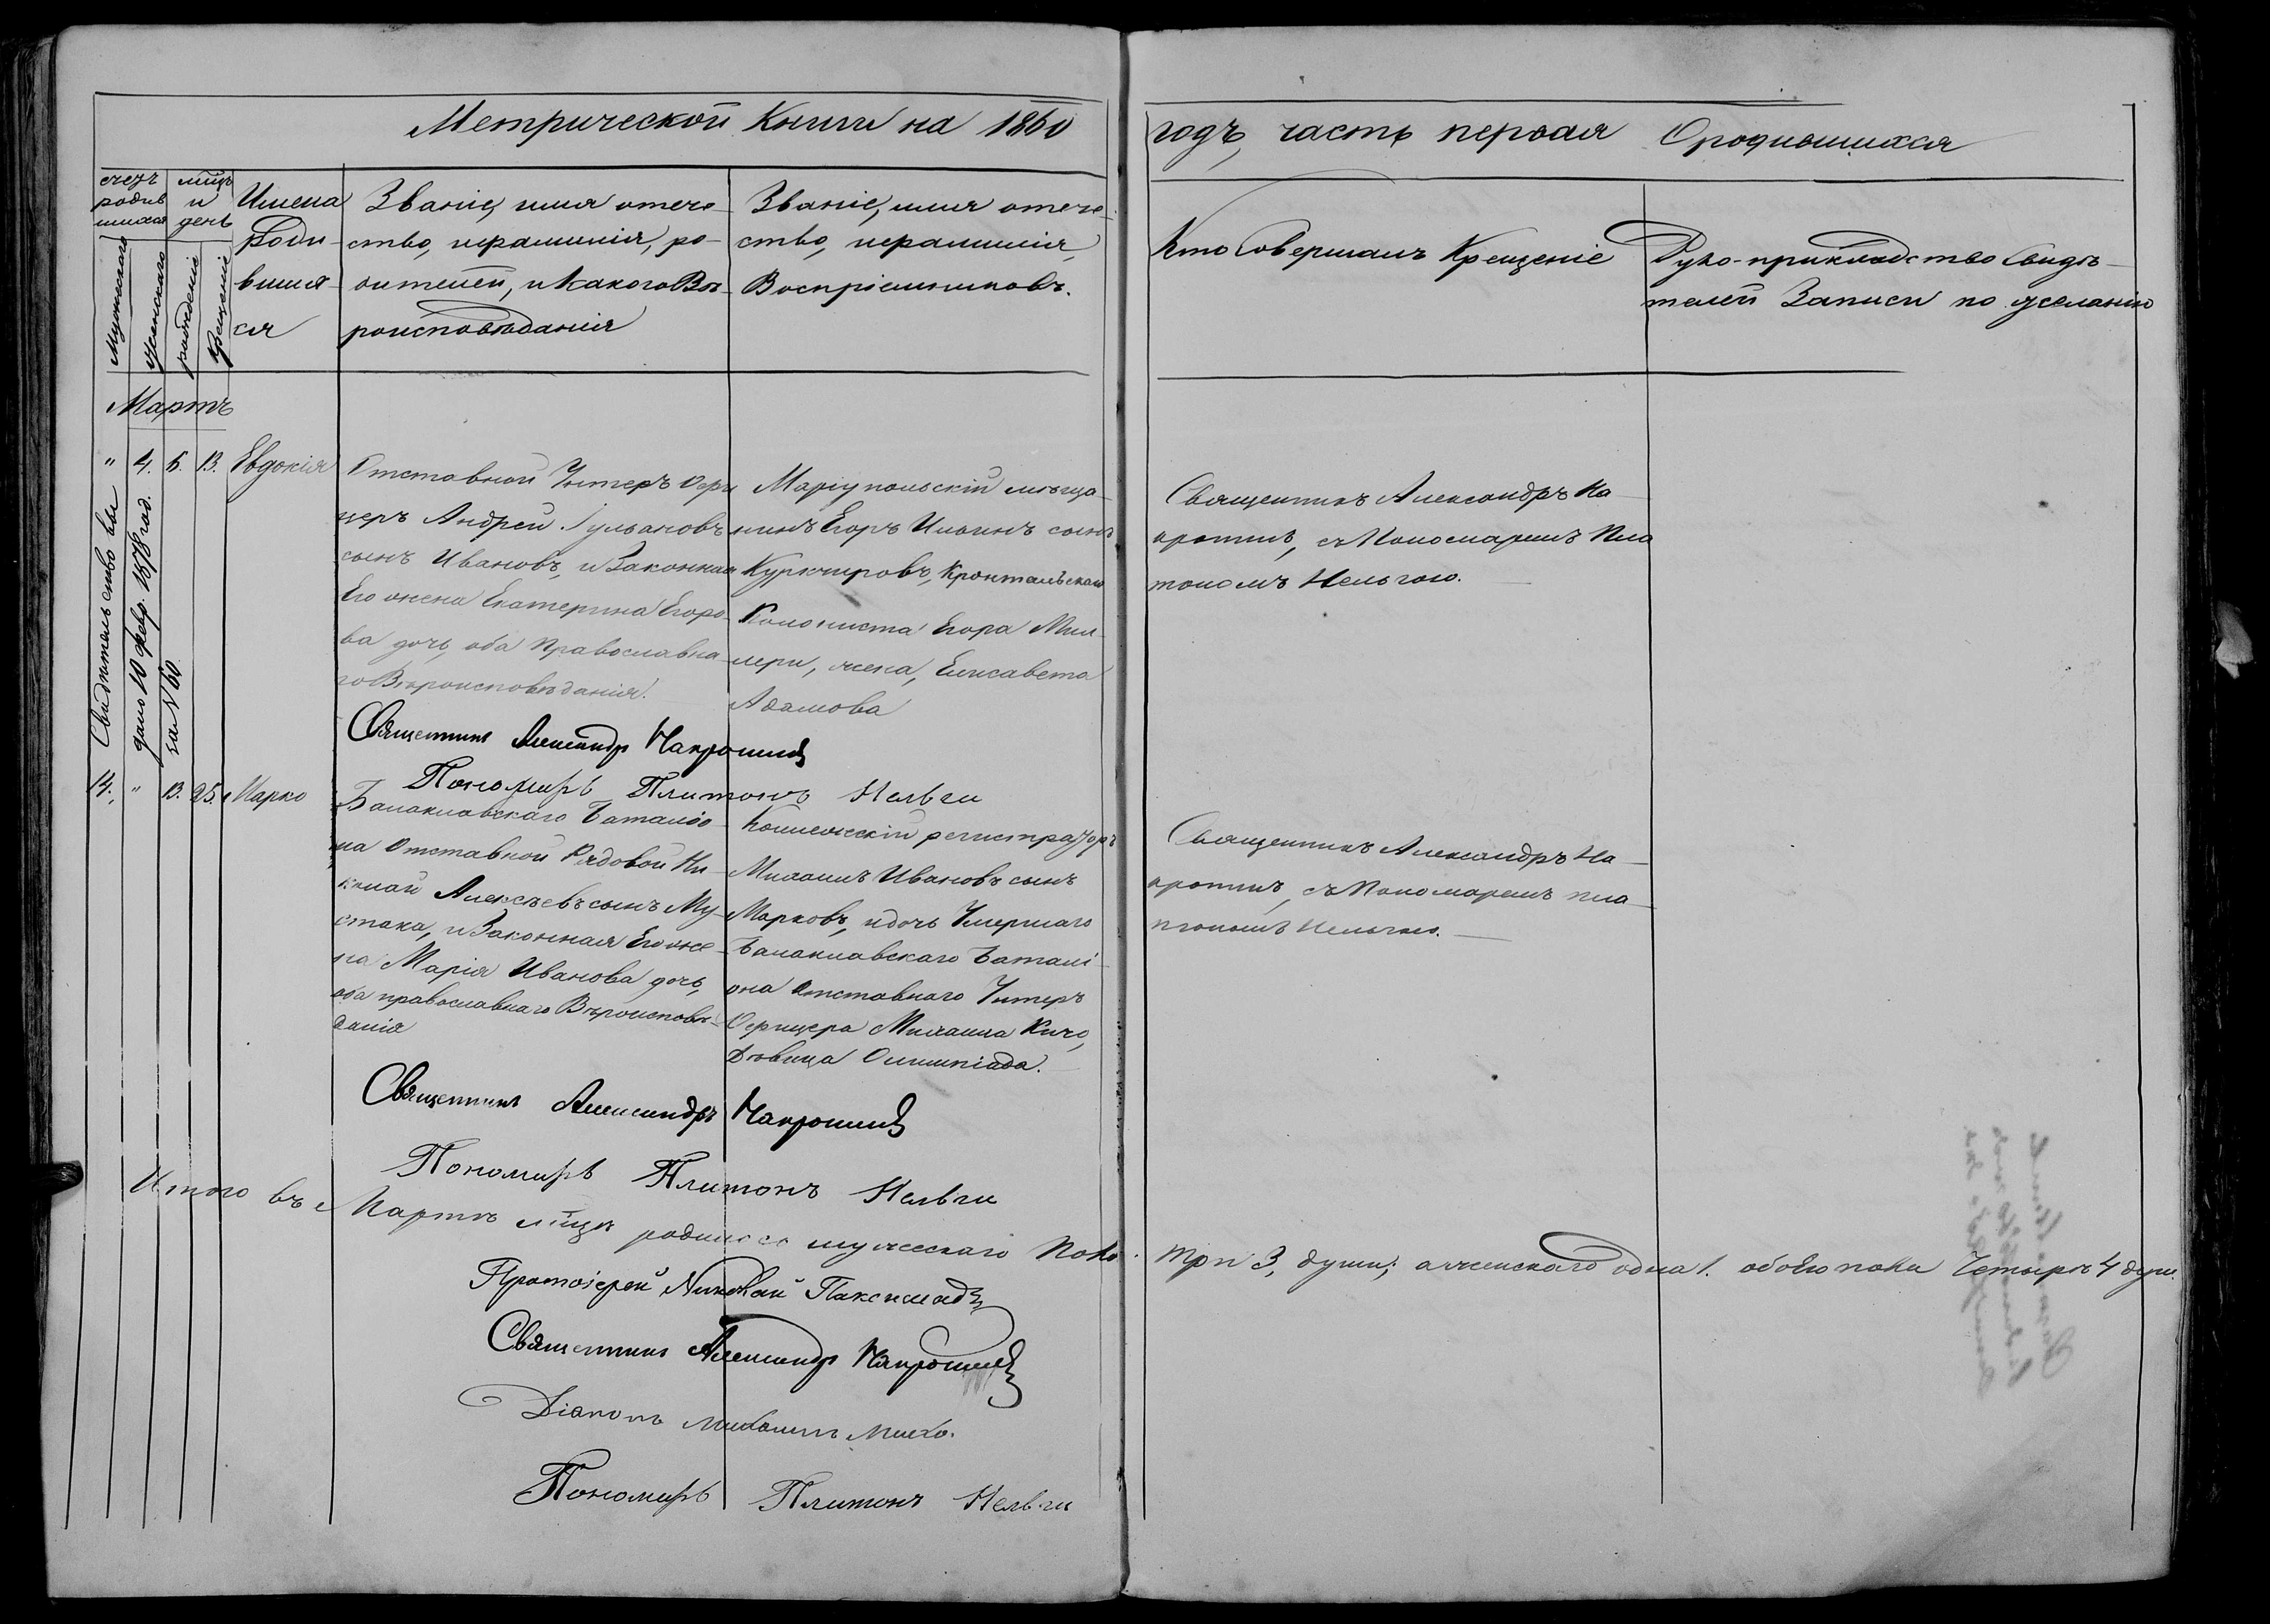 Метрической Книги на 1860
годъ, часть первая О родившихся
счетъ родив шихся
мѣцъ и день
Мужескаго
Женскаго
рожденiе
Крещенiе
Имена
Роди-
вшия-
ся
Званiе, имя отече-
ство, и фамилiя, ро-
дителей, и Какого Вѣ-
роисповѣданiя
Званiе, имя отече-
ство, и фамилiя,
Воспрiемниковъ.
Кто Совершалъ Крещенiе
Руко-прикладство Свидѣ-
телей Записи по желанiю
Мартъ
" 4. 6. 13. Евдокiя
Отставной Унтеръ Офи
церъ Андрей Гульановъ
сынъ Ивановъ, и Законная
Его жена Екатерина Егоро-
ва дочь, оба Православна-
го Вѣроисповѣданiя.
Марiупольскiй мѣща-
нинъ Егоръ Ильинъ сынъ
Куркчировъ, Кронтальскаго
Колониста Егора Мил-
лери, жена, Елисавета
Адамова
Священникъ Александръ На-
кропинъ, съ Пономаремъ Пла
тономъ Нельгою.
Свидѣтельство вы
дано 10 февр. 1878 год.
за № 60
Священникъ Александръ
Пономарь Платонъ Нельги
14. " 13. 25. Марко
Балаклавскаго Баталiо-
на Отставной Рядовой Ни-
колай Алексѣевъ сынъ Му-
стака, и Законная Его же-
на Марiя Иванова дочь,
оба православнаго Вѣроисповѣ-
данiя
Коллежскiй регистраторъ
Михаилъ Ивановъ сынъ
Марковъ, и дочь Умершаго
Балаклавскаго Баталi-
она Отставнаго Унтеръ
Офицера Михаила Кичо,
Дѣвица Олимпiада.
Священникъ Александръ На-
кропинъ, съ Пономаремъ Пла-
тономъ Нельгою.
Священникъ Александръ
Пономарь Платонъ Нельги
Итого въ Мартѣ мѣцѣ родилось мужескаго пола
три 3, души; а женскаго одна 1. обоего пола Четыре 4 души.
Протоiерей Николай Паксимадъ
Священникъ Александръ
Дiаконъ Михаилъ Михо.
Пономарь Платонъ Нельги